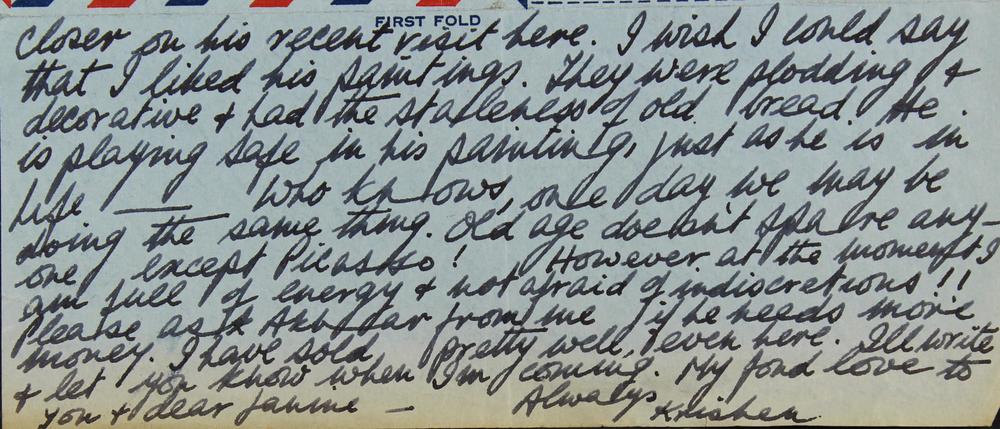 FIRST FOLD
closer on his recent visit here. I wish I could say
that I liked his paintings. They were plodding &
decorative & had the staleness of old bread. He
is playing safe in his painting, just as he is in
life — Who knows, one day we may be
doing the same thing. Old age doesn't spare any-
one except Picasso! However at the moment I
am full of energy & not afraid of indiscretions!!
Please ask Akbar from me if he needs more
money. I have sold pretty well, even here. I'll write
& let you know when I'm coming. My fond love to
you & dear Janine —
Always
Krishen